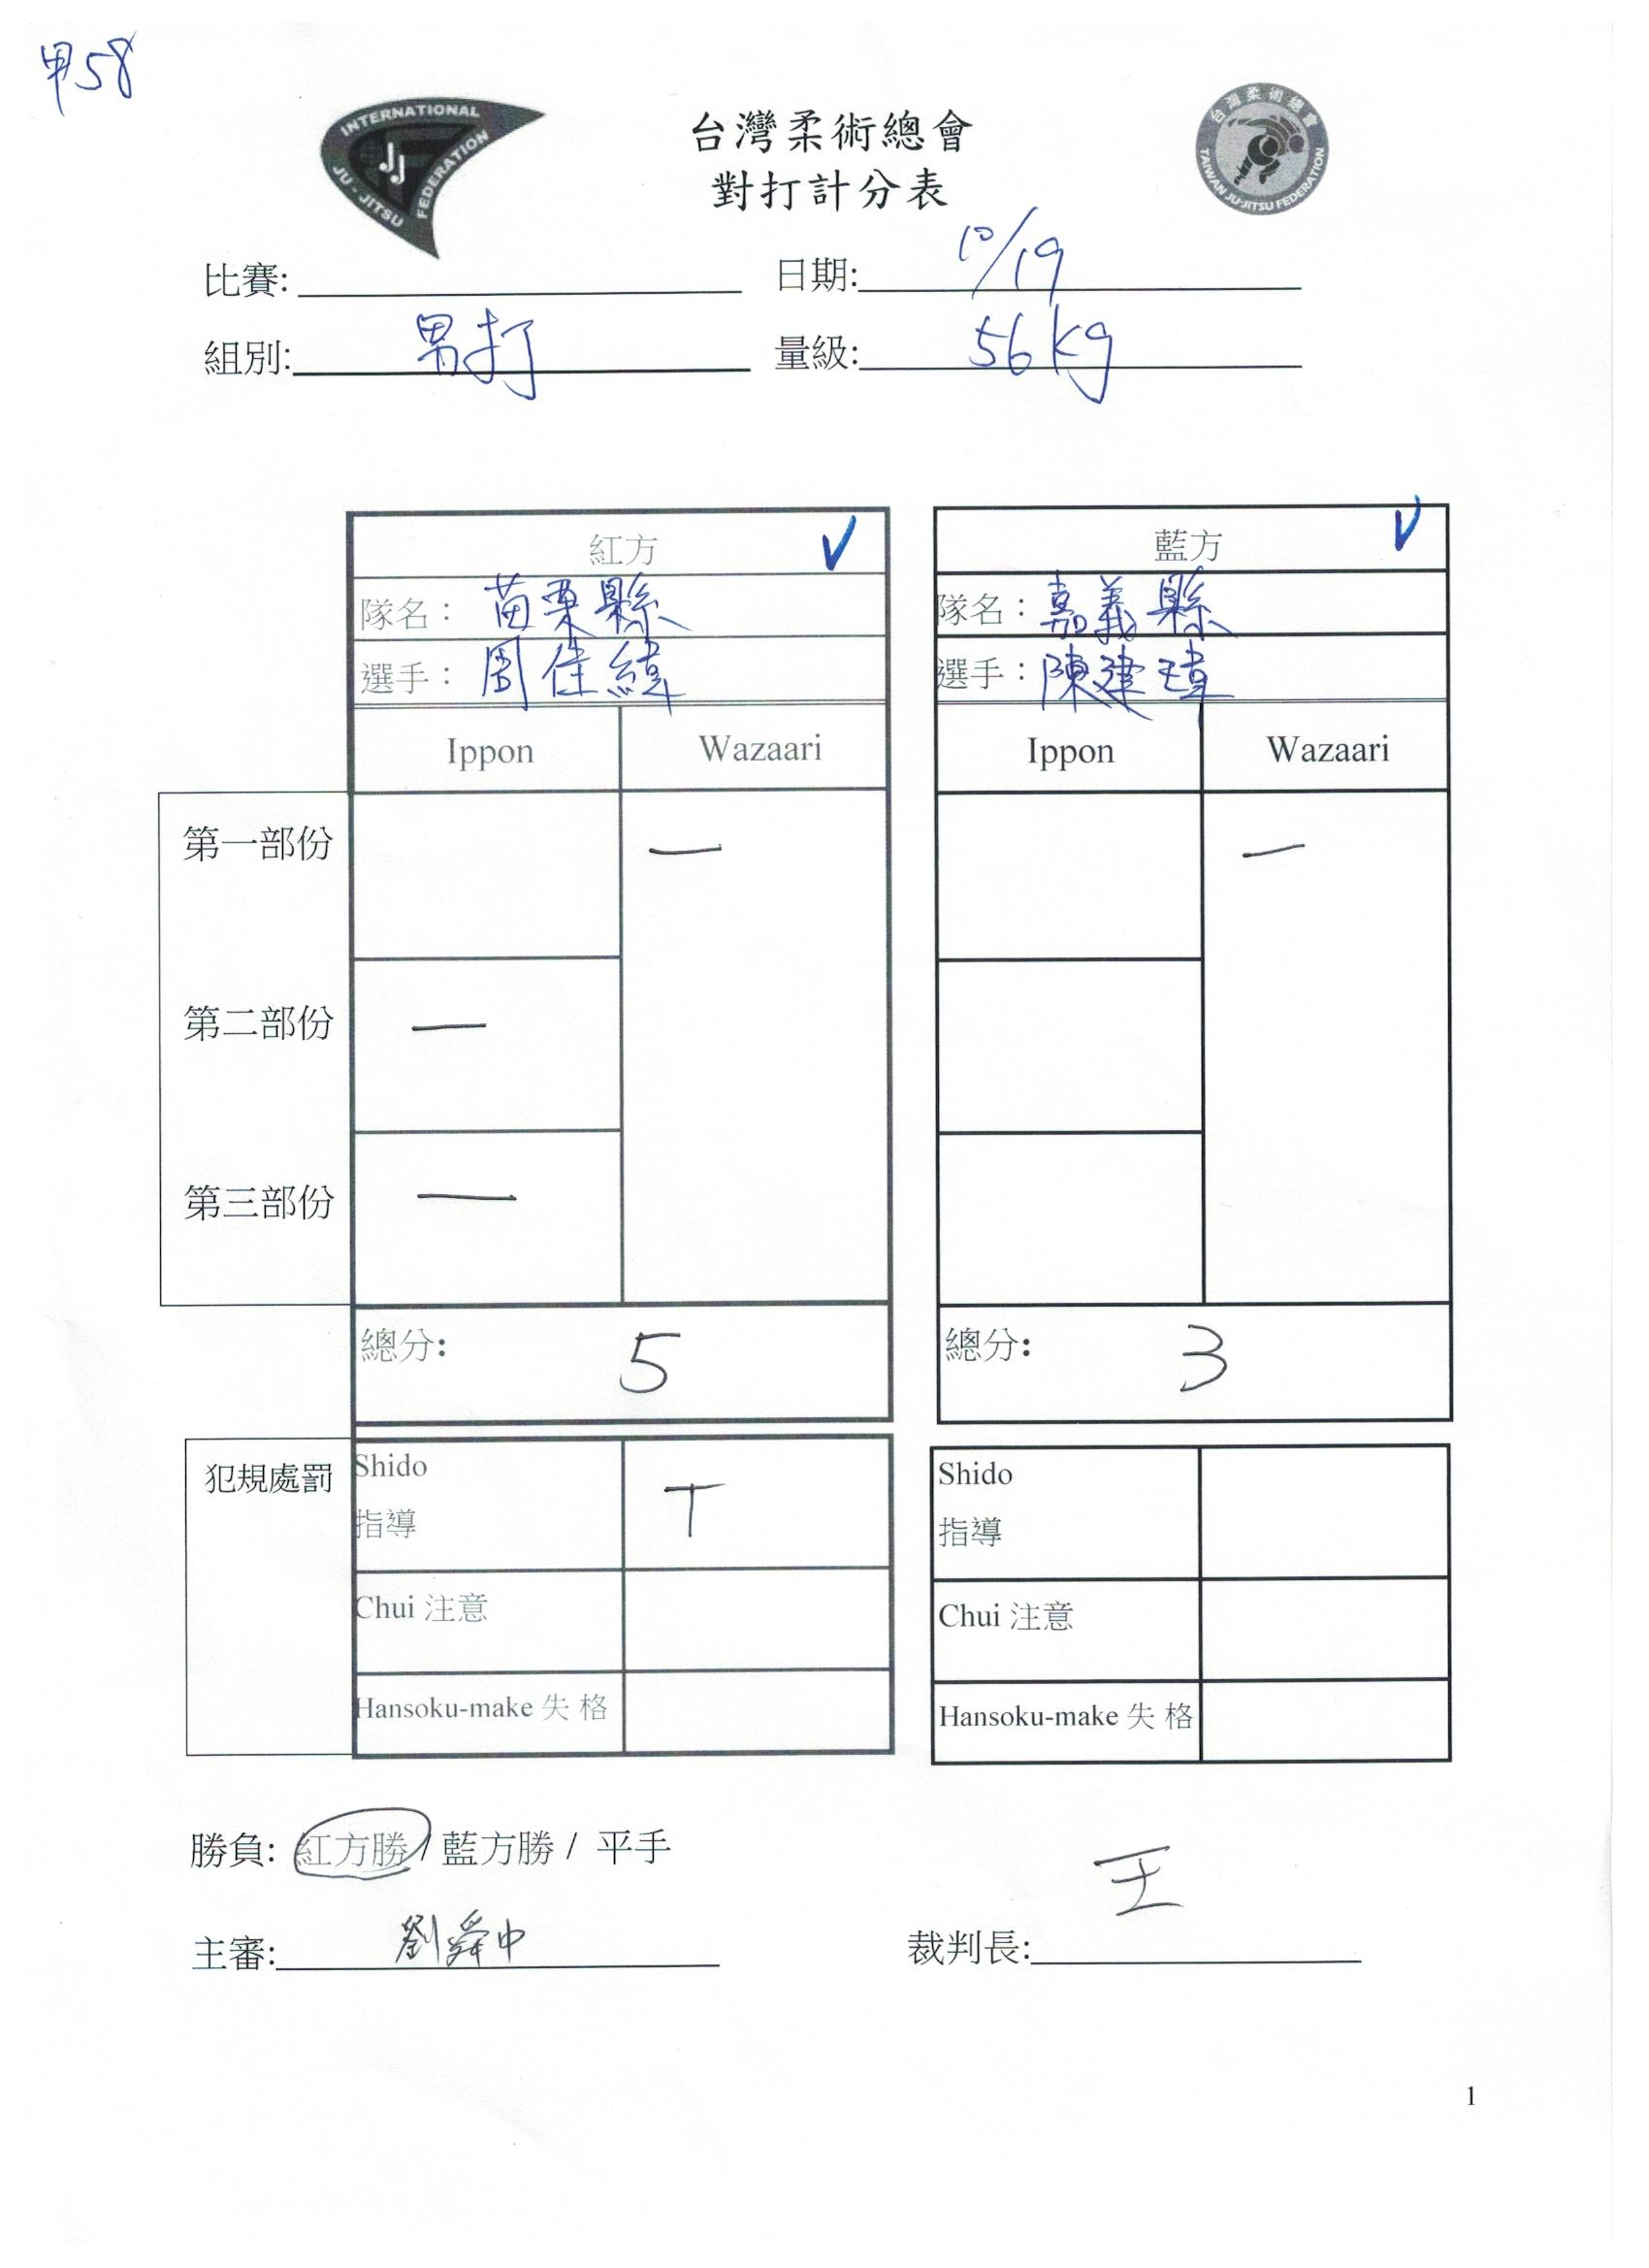 甲58
INTERNATIONAL
JU-JITSU FEDERATION
JJ
台灣柔術總會
TAIWAN JU-JITSU FEDERATION
台灣柔術總會
對打計分表
比賽: 日期: 10/19
組別: 男打 量級: 56kg
紅方 V 藍方 V
隊名： 苗栗縣 隊名： 嘉義縣
選手： 周佳緯 選手： 陳建瑋
Ippon Wazaari Ippon Wazaari
第一部份 一 一
第二部份 一
第三部份 一
總分: 5 總分: 3
犯規處罰 Shido 指導 T Shido 指導
Chui 注意 Chui 注意
Hansoku-make 失 格 Hansoku-make 失 格
勝負: 紅方勝 / 藍方勝 / 平手
主審: 劉舜中 裁判長: 王
1